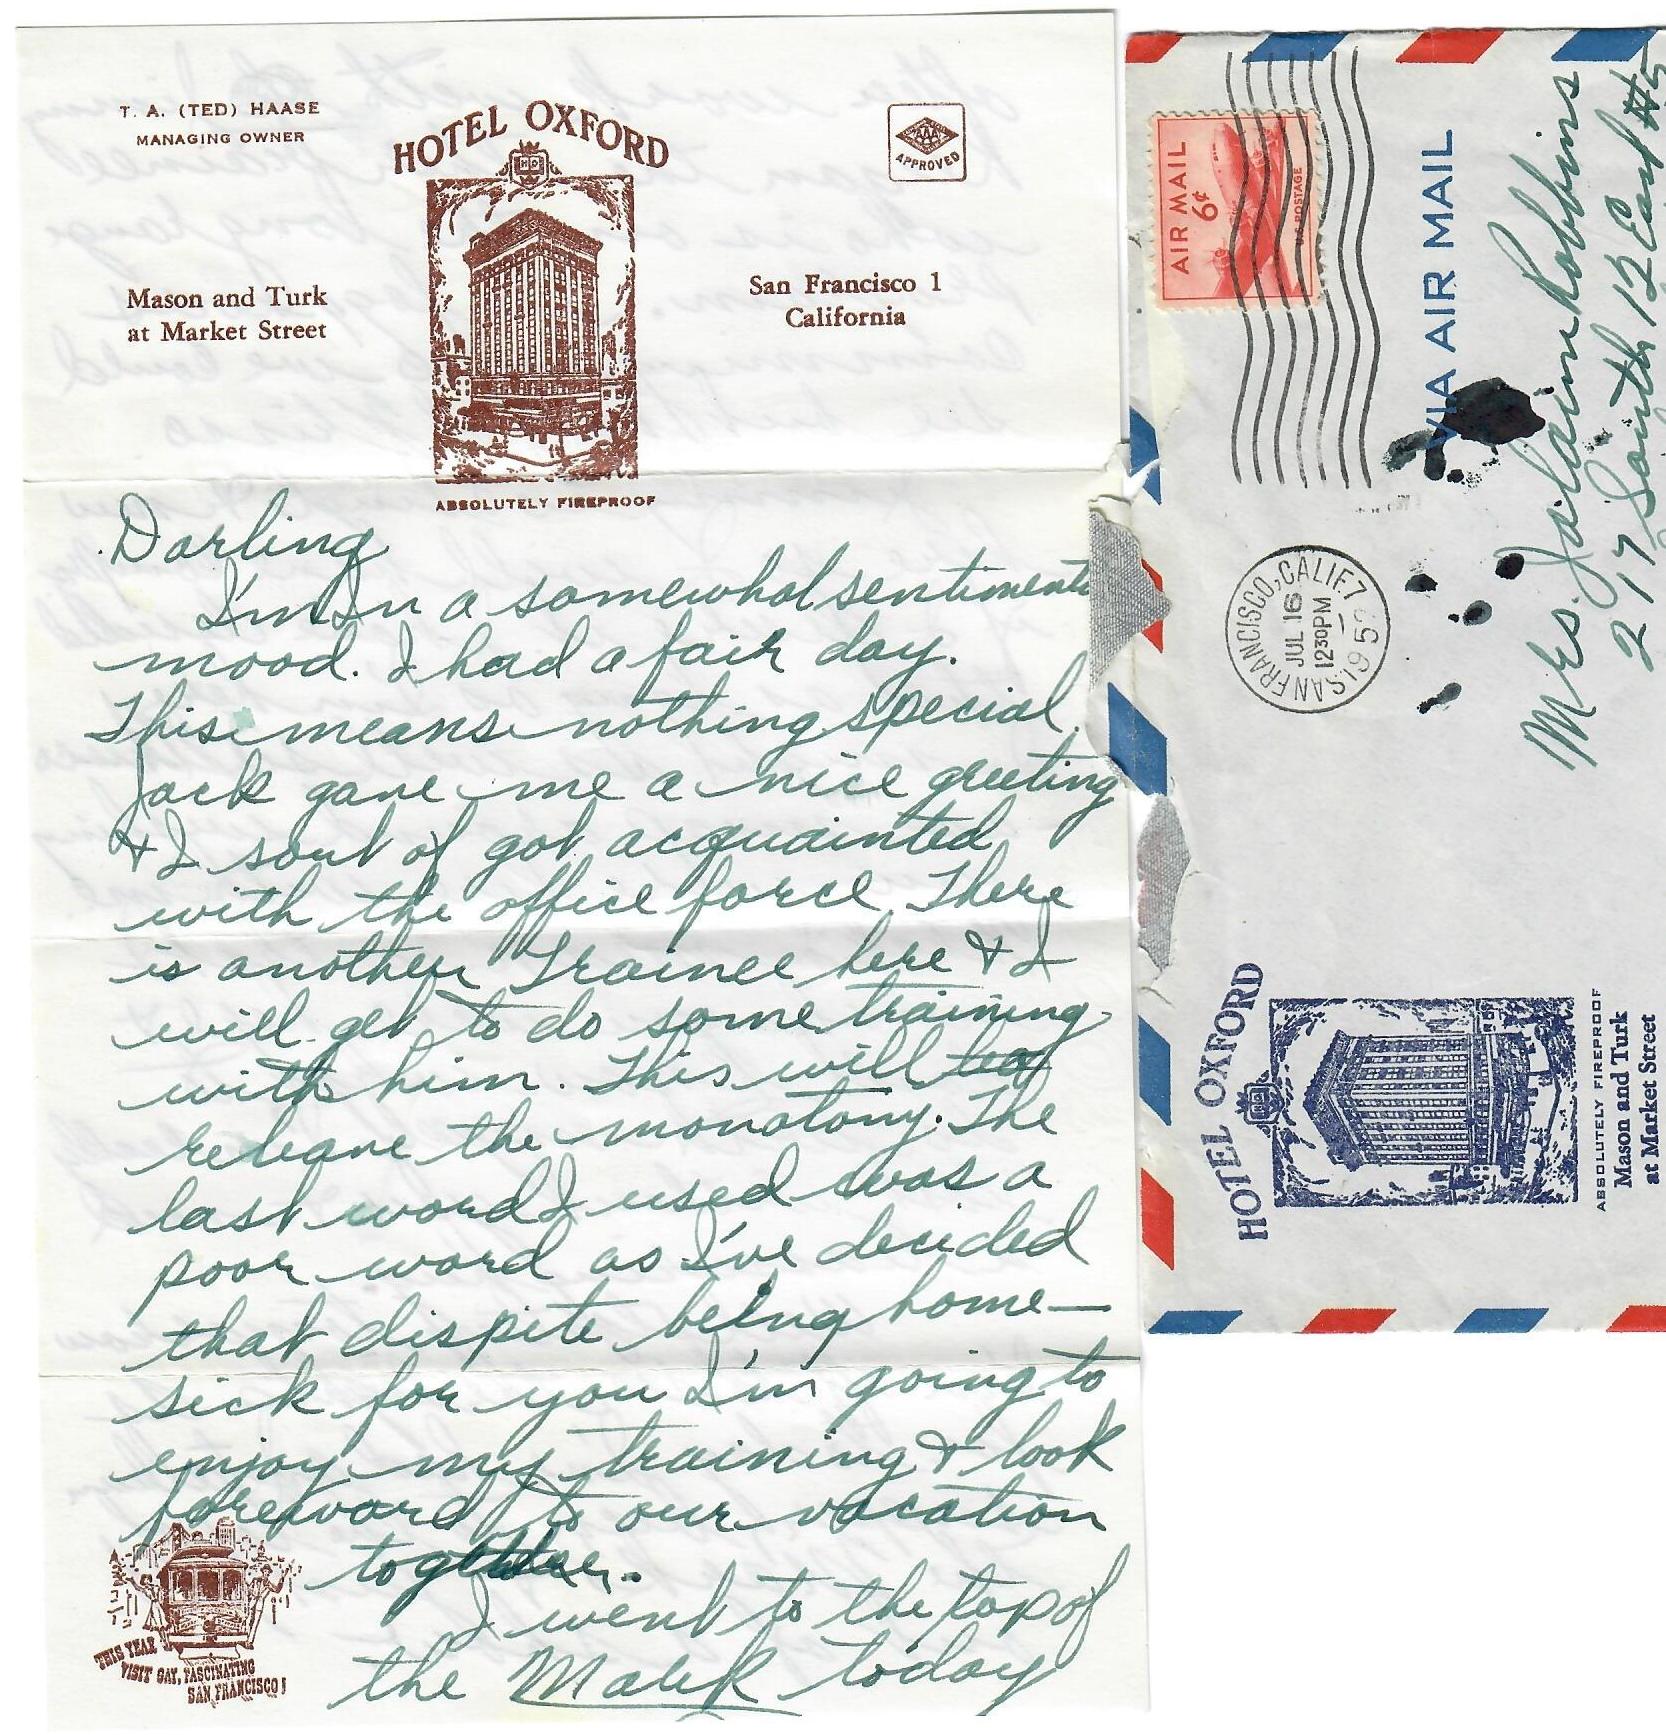 T. A. (TED) HAASE
MANAGING OWNER
HOTEL OXFORD
HO
AAA
APPROVED
Mason and Turk
at Market Street
San Francisco 1
California
ABSOLUTELY FIREPROOF
Darling
I'm In a somewhat sentimental
mood. I had a fair day.
This means nothing special.
Jack gave me a nice greeting
& I sort of got acquainted
with the office force. There
is another Trainee here & I
will get to do some training
with him. This will
releave the monotony. The
last word I used was a
poor word as I've decided
that dispite being home-
sick for you I'm going to
enjoy my training & look
foreword to our vacation
together.
I went to the top of
the Mark today
THIS YEAR
VISIT GAY, FASCINATING
SAN FRANCISCO!
AIR MAIL
6¢
U.S. POSTAGE
VIA AIR MAIL
SAN FRANCISCO, CALIF. 7
JUL 16
12 30 PM
195
Mrs. Robbins
217 South 12 East #5
HOTEL OXFORD
HO
ABSOLUTELY FIREPROOF
Mason and Turk
at Market Street